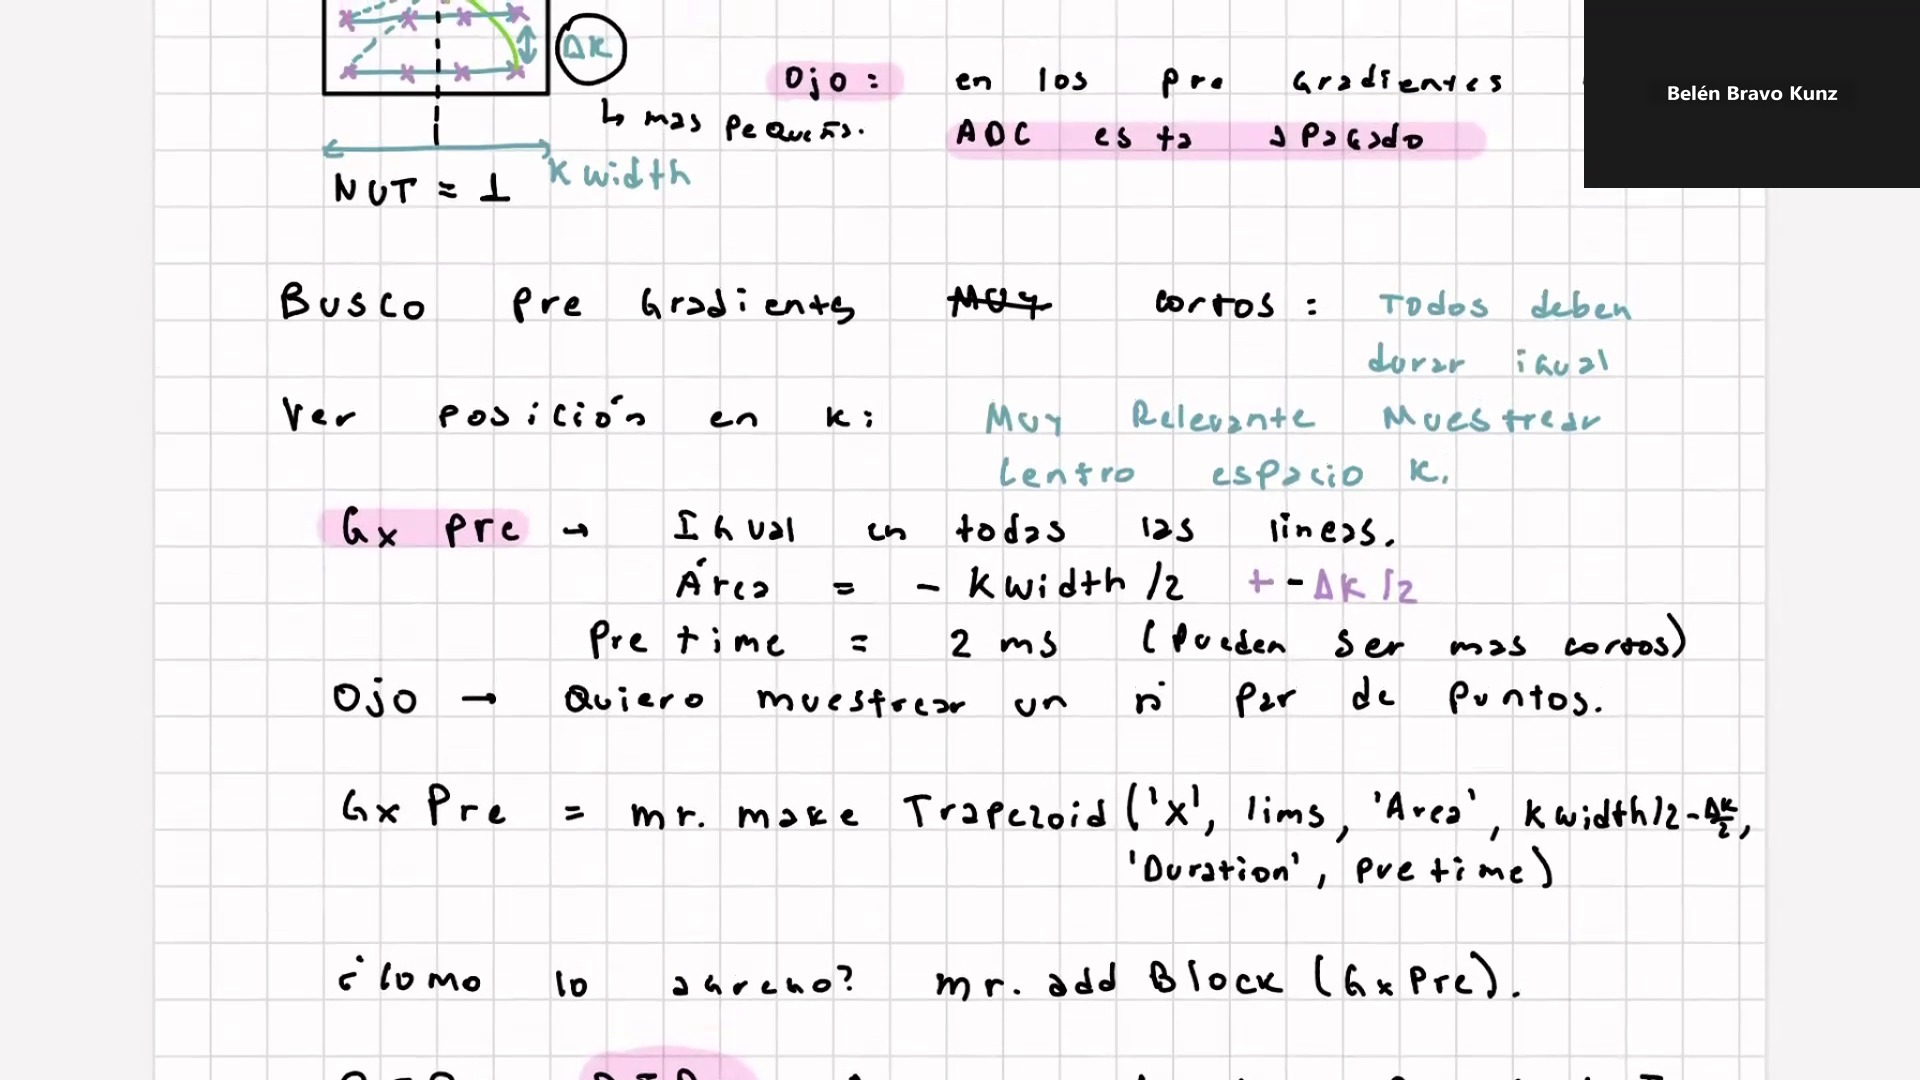 ΔK
Ojo: en los pre Gradientes
Belén Bravo Kunz
↳ mas pequeño.
ADC esta apagado
K width
NUT = 1
Busco pre Gradients Muy cortos: Todos deben
durar igual
Ver posición en k: Muy Relevante Muestrear
Centro espacio K.
Gx pre → Igual en todas las lineas.
Área = - K width /2 + - ΔK/2
Pre time = 2 ms (Pueden ser mas cortos)
Ojo → Quiero muestrear un n° par de puntos.
Gx Pre = mr. make Trapezoid ('x', lims, 'Area', K width/2 - ΔK/2,
'Duration', pre time)
¿Como lo agrego? mr. add Block (Gx Pre).